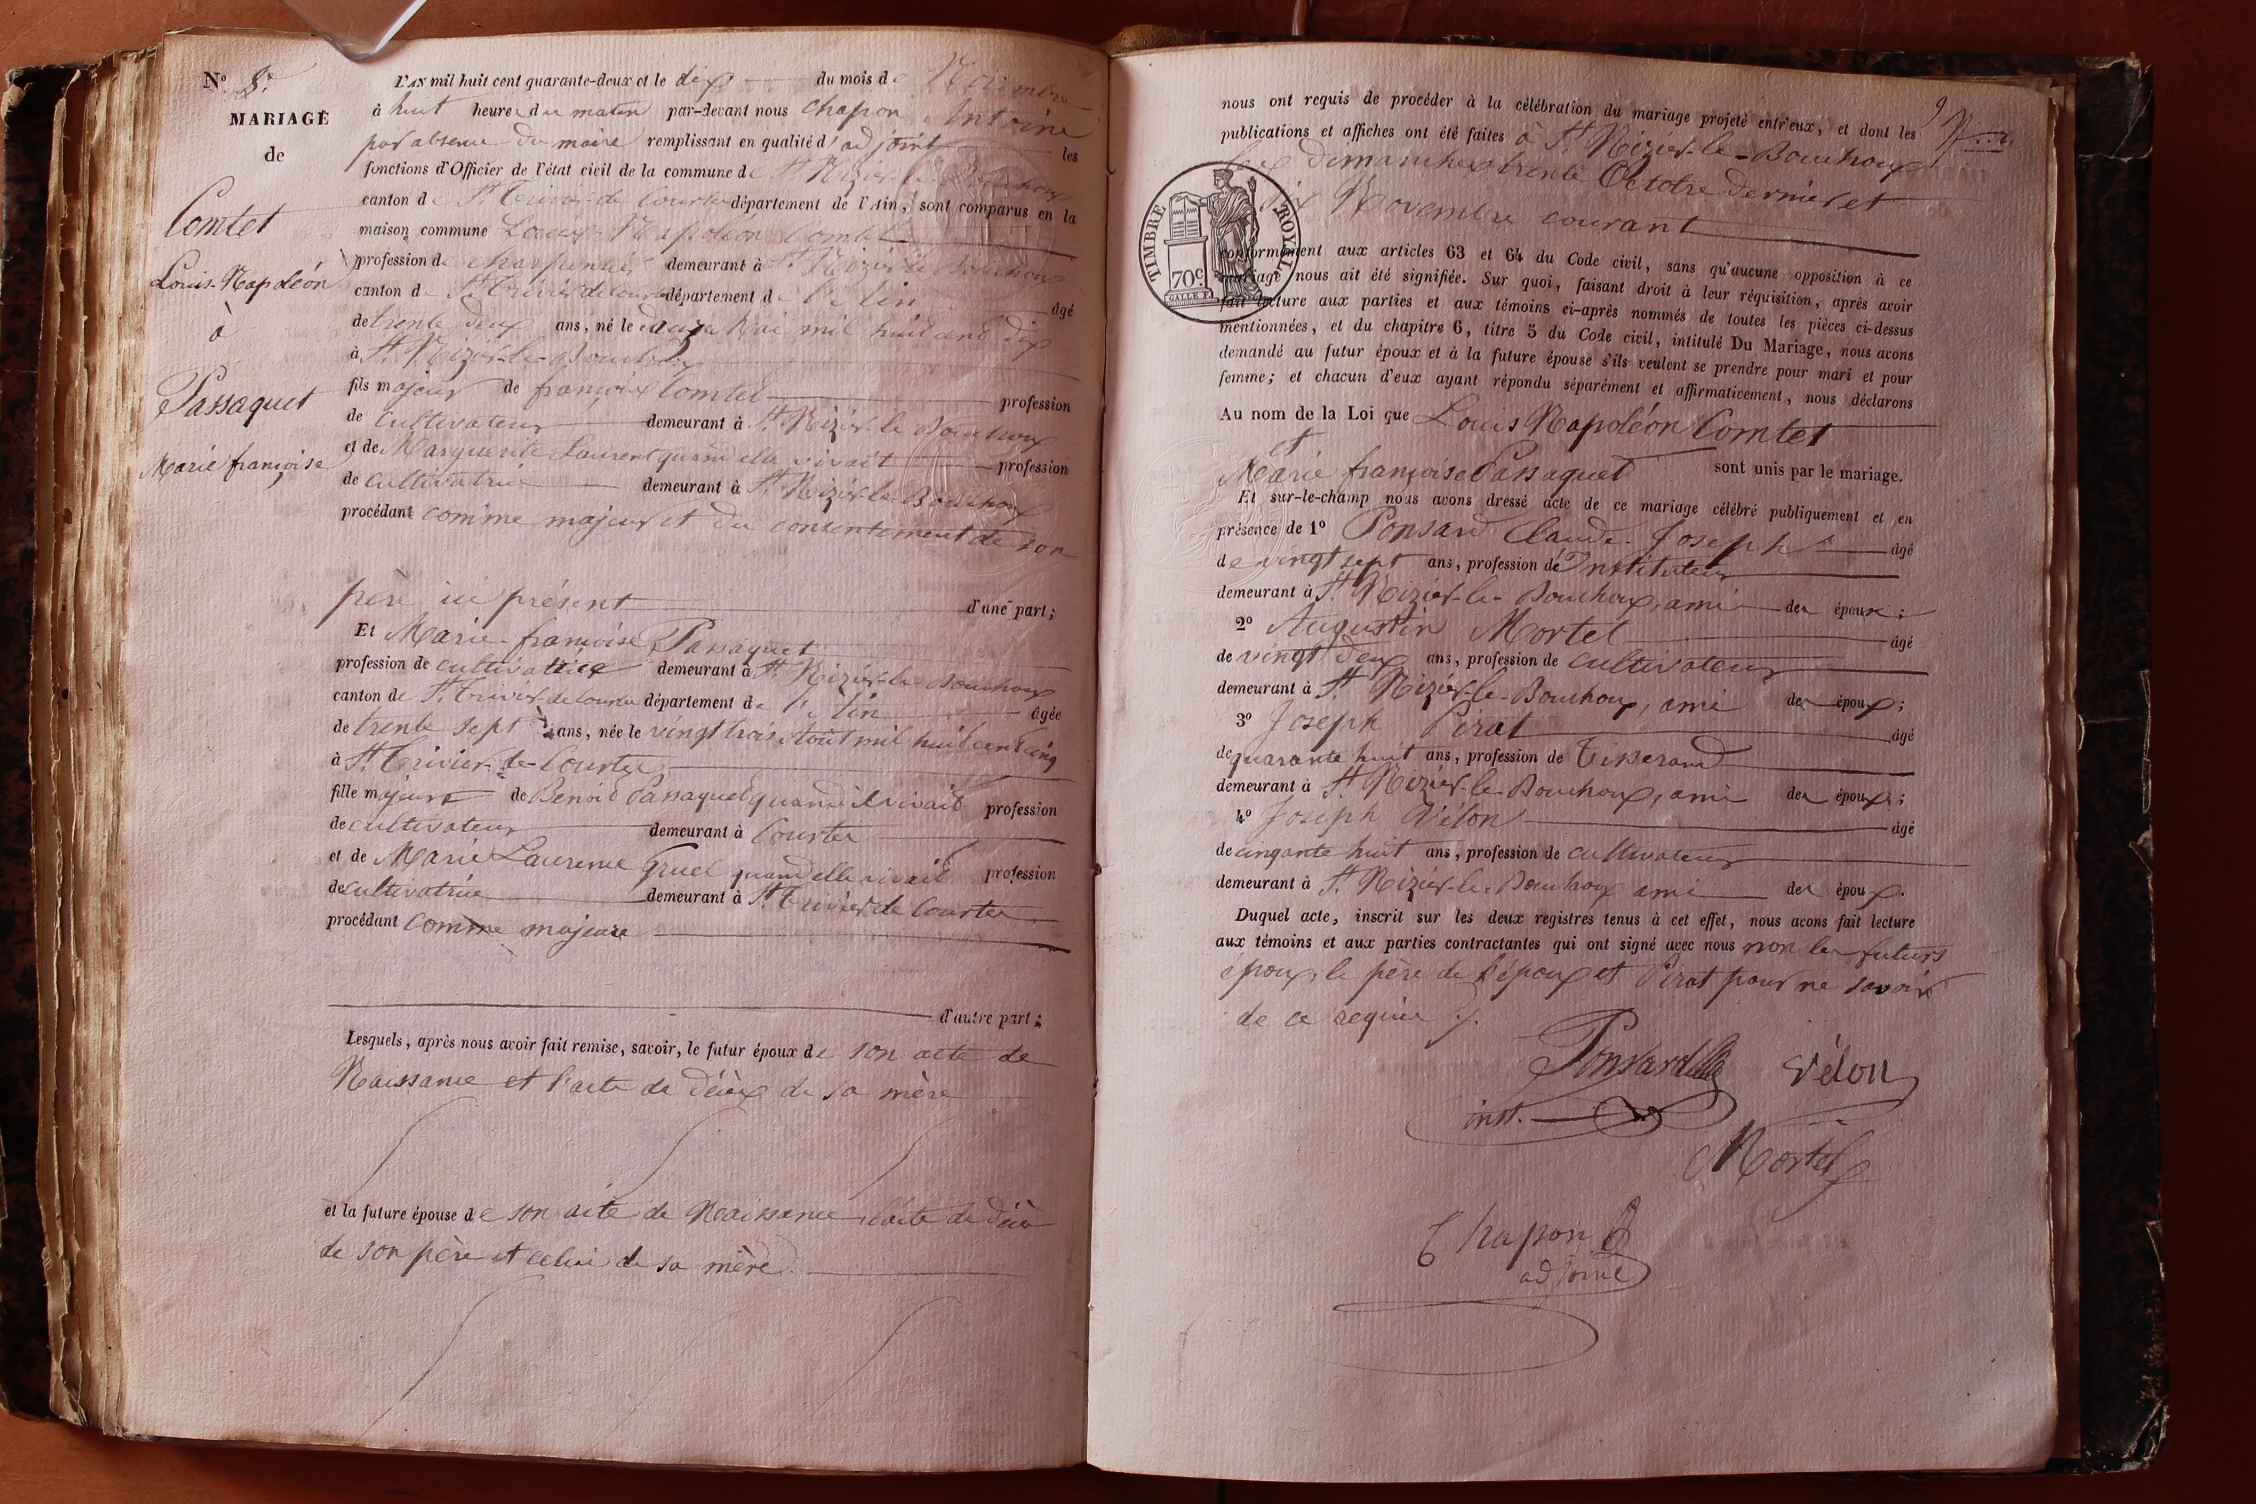 N.º 8.
MARIAGE
de
Comtet
Louis-Napoléon
à
Passaquet
Marie françoise
L'AN mil huit cent quarante-deux et le dix du mois de Novembre
à huit heures du matin par-devant nous Chapon Antoine
par absence du maire remplissant en qualité d'adjoint les
fonctions d'Officier de l'état civil de la commune de St Nizier-le-Bouchoux
canton de St. Trivier-de-Courtes département de l'Ain, sont comparus en la
maison commune Louis-Napoléon Comtet
profession de charpentier demeurant à St Nizier-le-Bouchoux
canton de St. Trivier de Courtes département de l'Ain âgé
de trente deux ans, né le douze Mai mil huit cent dix
à St. Nizier-le-Bouchoux
fils majeur de françois Comtet profession
de cultivateur demeurant à St. Nizier-le-Bouchoux
et de Marguerite Laurent quand elle vivait profession
de cultivatrice demeurant à St. Nizier-le-Bouchoux
procédant comme majeur et du consentement de son
père ici présent d'une part;
Et Marie-françoise Passaquet
profession de cultivatrice demeurant à St. Nizier-le-Bouchoux
canton de St. Trivier de Courtes département de l'Ain âgée
de trente sept ans, née le vingt trois Aout mil huit cent cinq
à St. Trivier-de-Courtes
fille majeure de Benoit Passaquet quand il vivait profession
de cultivateur demeurant à Courtes
et de Marie Laurence Gruel quand elle vivait profession
de cultivatrice demeurant à St. Trivier de Courtes
procédant comme majeure
d'autre part;
Lesquels, après nous avoir fait remise, savoir, le futur époux de son acte de
Naissance et l'acte de décès de sa mère
et la future épouse de son acte de Naissance, l'acte de décès
de son père et celui de sa mère.
9
nous ont requis de procéder à la célébration du mariage projeté entr'eux, et dont les
publications et affiches ont été faites à St. Nizier-le-Bouchoux
les dimanches trente Octobre dernier et
six Novembre courant
TIMBRE ROYAL
70c.
conformément aux articles 63 et 64 du Code civil, sans qu'aucune opposition à ce
mariage nous ait été signifiée. Sur quoi, faisant droit à leur réquisition, après avoir
fait lecture aux parties et aux témoins ci-après nommés de toutes les pièces ci-dessus
mentionnées, et du chapitre 6, titre 5 du Code civil, intitulé Du Mariage, nous avons
demandé au futur époux et à la future épouse s'ils veulent se prendre pour mari et pour
femme; et chacun d'eux ayant répondu séparément et affirmativement, nous déclarons
Au nom de la Loi que Louis Napoléon Comtet
et
Marie françoise Passaquet sont unis par le mariage.
Et sur-le-champ nous avons dressé acte de ce mariage célébré publiquement et en
présence de 1º Ponsard Claude-Joseph âgé
de vingt sept ans, profession de Instituteur
demeurant à St. Nizier-le-Bouchoux, ami des époux;
2º Augustin Mortel âgé
de vingt deux ans, profession de cultivateur
demeurant à St. Nizier-le-Bouchoux, ami des époux;
3º Joseph Pirat âgé
de quarante huit ans, profession de Tisserand
demeurant à St. Nizier-le-Bouchoux, ami des époux;
4º Joseph Vélon âgé
de cinqante huit ans, profession de cultivateur
demeurant à St. Nizier-le-Bouchoux ami des époux.
Duquel acte, inscrit sur les deux registres tenus à cet effet, nous avons fait lecture
aux témoins et aux parties contractantes qui ont signé avec nous non les futurs
époux, le père de l'époux et Pirat pour ne savoir
de ce requis ./.
Ponsard Vélon
inst.
Mortel
Chapon
adjoint